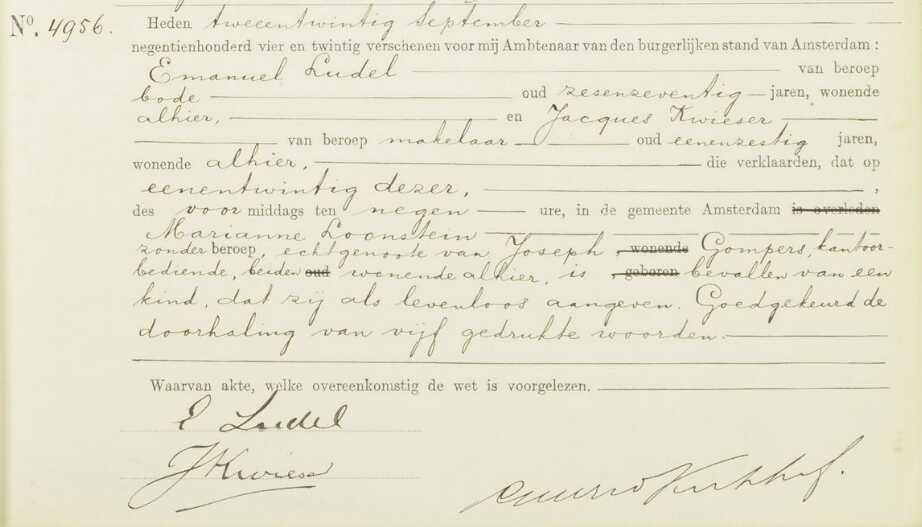 Nº. 4956.
Heden tweeentwintig September
negentienhonderd vier en twintig verschenen voor mij Ambtenaar van den burgerlijken stand van Amsterdam :
Emanuel Ludel van beroep
bode oud zesenzeventig jaren, wonende
alhier, en Jacques Kwieser
van beroep makelaar oud eenenzestig jaren,
wonende alhier, die verklaarden, dat op
eenentwintig dezer, ,
des voor middags ten negen ure, in de gemeente Amsterdam is overleden
Marianne Loonstein
zonder beroep, echtgenoote van Joseph , wonende Gompers, kantoor-
bediende, beiden oud wonende alhier, is , geboren bevallen van een
kind, dat zij als levenloos aangeven. Goedgekeurd de
doorhaling van vijf gedrukte woorden.
Waarvan akte, welke overeenkomstig de wet is voorgelezen.
E Ludel
J Kwieser